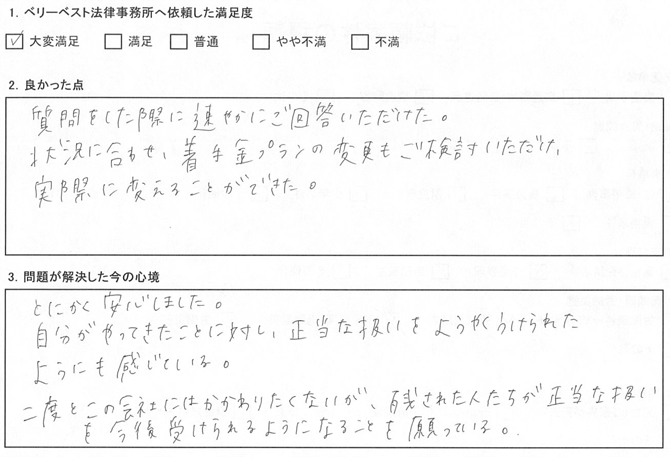 1. ベリーベスト法律事務所へ依頼した満足度
☑ 大変満足 □ 満足 □ 普通 □ やや不満 □ 不満
2. 良かった点
質問をした際に速やかにご回答いただけた。
状況に合わせ、着手金プランの変更もご検討いただけ、
実際に変えることができた。
3. 問題が解決した今の心境
とにかく安心しました。
自分がやってきたことに対し、正当な扱いをようやくうけられた
ようにも感じている。
二度とこの会社にはかかわりたくないが、残された人たちが正当な扱い
を今後受けられるようになることを願っている。